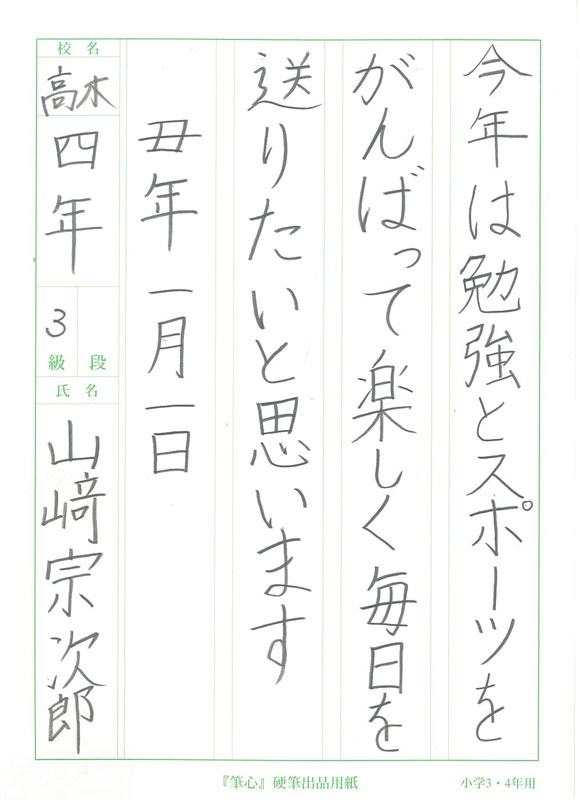 今年は勉強とスポーツを
がんばって楽しく毎日を
送りたいと思います
丑年一月一日
校名
高木
四年
3
級段
氏名
山﨑宗次郎
『筆心』硬筆出品用紙
小学3・4年用